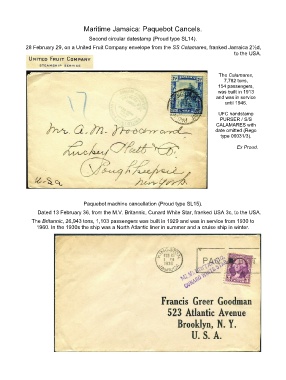 Maritime Jamaica: Paquebot Cancels.
Second circular datestamp (Proud type SL14).
28 February 29, on a United Fruit Company envelope from the SS Calamares, franked Jamaica 2½d,
to the USA.
UNITED FRUIT COMPANY
STEAMSHIP SERVICE
The Calamares,
7,782 tons,
154 passengers,
was built in 1913
and was in service
until 1946.
UFC handstamp
PURSER / S/S
CALAMARES with
date omitted (Regc
type 09031/3).
Ex Proud.
7
Mr. A. M. Woodward
Luckey Platt Co.
Poughkeepsie
New York
U.S.a
Paquebot machine cancellation (Proud type SL15).
Dated 13 February 36, from the M.V. Britannic, Cunard White Star, franked USA 3c, to the USA.
The Britannic, 26,943 tons, 1,103 passengers was built in 1929 and was in service from 1930 to
1960. In the 1930s the ship was a North Atlantic liner in summer and a cruise ship in winter.
Francis Greer Goodman
523 Atlantic Avenue
Brooklyn, N. Y.
U. S. A.